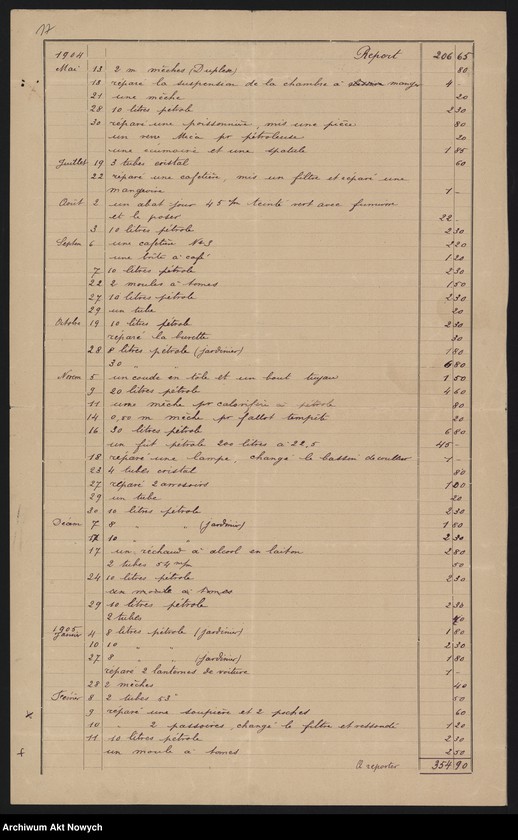 17
1904 Report 206 65
Mai 13 2 m mèches (Duplex) 80
13 réparé la suspension de la chambre à manger 4 -
21 une mèche 20
28 10 litres pétrole 2 30
30 réparé une poissonnière, mis une pièce 80
un verre Mica pr pétroleuse 20
une écumoire et une spatule 1 85
Juillet 19 3 tubes cristal 60
22 réparé une cafetière, mis un filtre et réparé une
mangeoire 1 -
Août 2 un abat-jour 45 c/m teinté vert avec fumivore
et le poser 22 -
3 10 litres pétrole 2 30
Septem 6 une cafetière No 3 2 20
une boîte à café 1 20
7 10 litres pétrole 2 30
22 2 moules à tomes 1 50
27 10 litres pétrole 2 30
29 un tube 20
Octobre 19 10 litres pétrole 2 30
réparé la burette 30
28 8 litres pétrole (Jardinier) 1 80
30 " " 6 80
Novem 5 un coude en tôle et un bout tuyau 1 50
9 20 litres pétrole 4 60
11 une mèche pr calorifère à pétrole 80
14 0,50 m mèche pr fallot tempête 20
16 30 litres pétrole 6 80
un fut pétrole 200 litres à 22,5 45 -
18 réparé une lampe, changé le bassin 1 -
23 4 tubes cristal 80
27 réparé 2 arrosoirs 1 00
29 un tube 20
30 10 litres pétrole 2 30
Décem 7 8 " " (Jardinier) 1 80
10 " " 2 30
17 un réchaud à alcool en laiton 2 80
2 tubes 54 m/m 50
24 10 litres pétrole 2 30
un moule à tomes
29 10 litres pétrole 2 30
2 tubes 40
1905
Janvier 4 8 litres pétrole (Jardinier) 1 80
10 10 " " 2 30
27 8 " " (Jardinier) 1 80
réparé 2 lanternes de voiture 1 -
28 2 mèches 40
Février 8 2 tubes 53" 50
9 réparé une soupière et 2 poches 60
10 " 2 passoires, changé le filtre et ressoudé 1 20
11 10 litres pétrole 2 30
un moule à tomes 2 50
A reporter 354 90
Archiwum Akt Nowych
Archiwum Akt Nowych